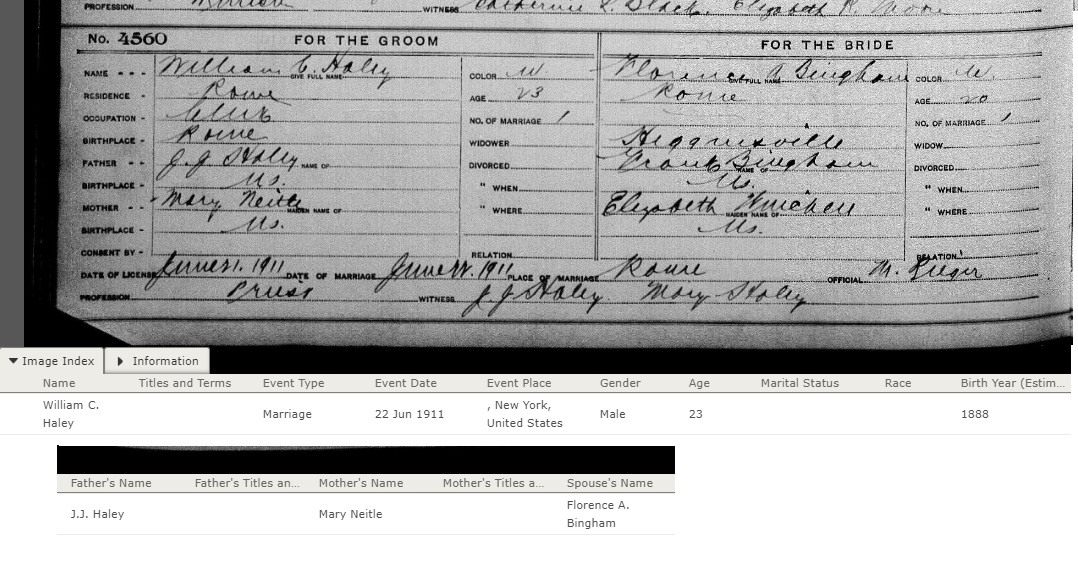 PROFESSION WITNESS Catherine L. Black. Elizabeth R. Moore
No. 4560 FOR THE GROOM FOR THE BRIDE
NAME William C. Haley GIVE FULL NAME COLOR W Florence A Bingham GIVE FULL NAME COLOR W
RESIDENCE Rome AGE 23 Rome AGE 20
OCCUPATION Clerk NO. OF MARRIAGE 1 NO. OF MARRIAGE 1
BIRTHPLACE Rome WIDOWER Higginsville WIDOW
FATHER J. J Haley NAME OF DIVORCED Frank Bingham NAME OF DIVORCED
BIRTHPLACE U.S. " WHEN U.S. " WHEN
MOTHER Mary Neitle MAIDEN NAME OF " WHERE Elizabeth MAIDEN NAME OF " WHERE
BIRTHPLACE U.S. U.S.
CONSENT BY RELATION RELATION
DATE OF LICENSE June 21. 1911 DATE OF MARRIAGE June 22. 1911 PLACE OF MARRIAGE Rome OFFICIAL M.
PROFESSION Priest WITNESS J. J Haley Mary Haley
Image Index Information
Name Titles and Terms Event Type Event Date Event Place Gender Age Marital Status Race Birth Year (Estim...
William C. Haley Marriage 22 Jun 1911 , New York, United States Male 23 1888
Father's Name Father's Titles an... Mother's Name Mother's Titles a... Spouse's Name
J.J. Haley Mary Neitle Florence A. Bingham